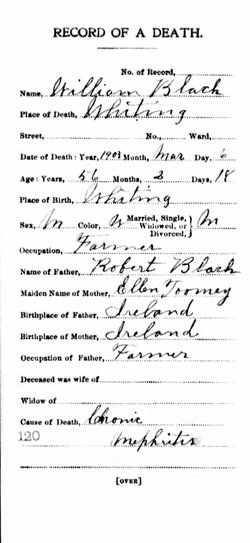 RECORD OF A DEATH.
No. of Record,
Name, William Black
Place of Death, Whiting
Street, No., Ward,
Date of Death: Year, 1903 Month, Mar Day, 6
Age: Years, 56 Months, 2 Days, 18
Place of Birth, Whiting
Sex, M Color, W Married, Single, Widowed, or Divorced, M
Occupation, Farmer
Name of Father, Robert Black
Maiden Name of Mother, Ellen Toomey
Birthplace of Father, Ireland
Birthplace of Mother, Ireland
Occupation of Father, Farmer
Deceased was wife of
Widow of
Cause of Death, Chonic
120 Nephritis
[OVER]